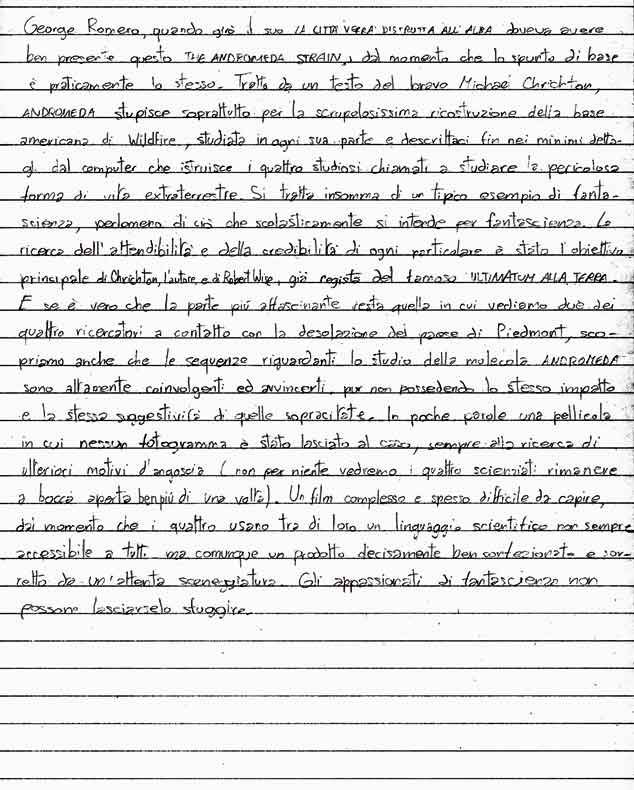 George Romero, quando girò il suo LA CITTÀ VERRÀ DISTRUTTA ALL'ALBA doveva avere
ben presente questo THE ANDROMEDA STRAIN, dal momento che lo spunto di base
è praticamente lo stesso. Tratto da un testo del bravo Michael Chrichton,
ANDROMEDA stupisce soprattutto per la scrupolosissima ricostruzione della base
americana di Wildfire, studiata in ogni sua parte e descrittaci fin nei minimi detta-
gli dal computer che istruisce i quattro studiosi chiamati a studiare la pericolosa
forma di vita extraterrestre. Si tratta insomma di un tipico esempio di fanta-
scienza, perlomeno di ciò che scolasticamente si intende per fantascienza. La
ricerca dell'attendibilità e della credibilità di ogni particolare è stato l'obiettivo
principale di Chrichton, l'autore, e di Robert Wise, già regista del famoso ULTIMATUM ALLA TERRA.
E se è vero che la parte più affascinante resta quella in cui vediamo due dei
quattro ricercatori a contatto con la desolazione del paese di Piedmont, sco-
priamo anche che le sequenze riguardanti lo studio della molecola ANDROMEDA
sono altamente coinvolgenti ed avvincenti, pur non possedendo lo stesso impatto
e la stessa suggestività di quelle sopracitate. In poche parole una pellicola
in cui nessun fotogramma è stato lasciato al caso, sempre alla ricerca di
ulteriori motivi d'angoscia (non per niente vedremo i quattro scienziati rimanere
a bocca aperta ben più di una volta). Un film complesso e spesso difficile da capire,
dal momento che i quattro usano tra di loro un linguaggio scientifico non sempre
accessibile a tutti ma comunque un prodotto decisamente ben confezionato e sor-
retto da un'attenta sceneggiatura. Gli appassionati di fantascienza non
possono lasciarselo sfuggire.